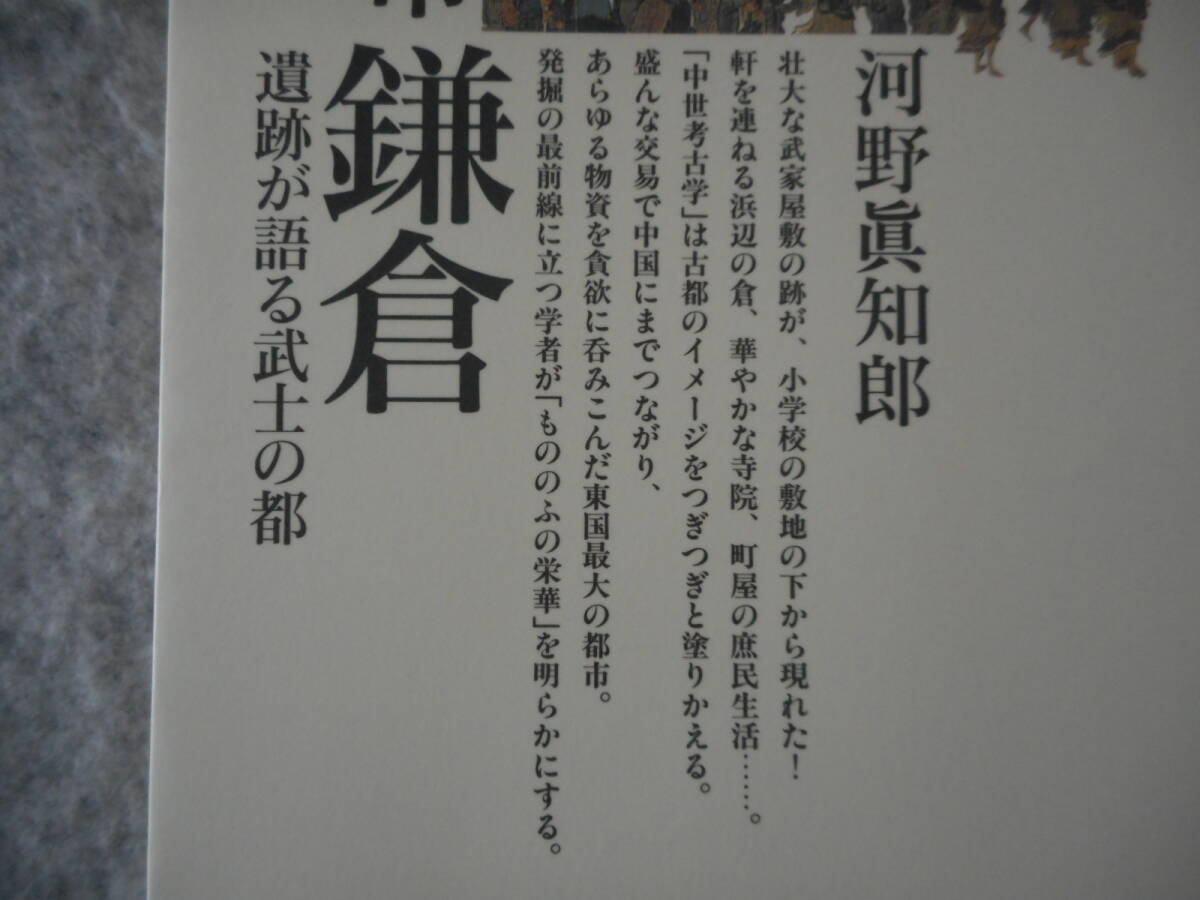 河野眞知郎
壮大な武家屋敷の跡が、小学校の敷地の下から現れた！
軒を連ねる浜辺の倉、華やかな寺院、町屋の庶民生活……。
「中世考古学」は古都のイメージをつぎつぎと塗りかえる。
盛んな交易で中国にまでつながり、
あらゆる物資を貪欲に呑みこんだ東国最大の都市。
発掘の最前線に立つ学者が「もののふの栄華」を明らかにする。
鎌倉
遺跡が語る武士の都